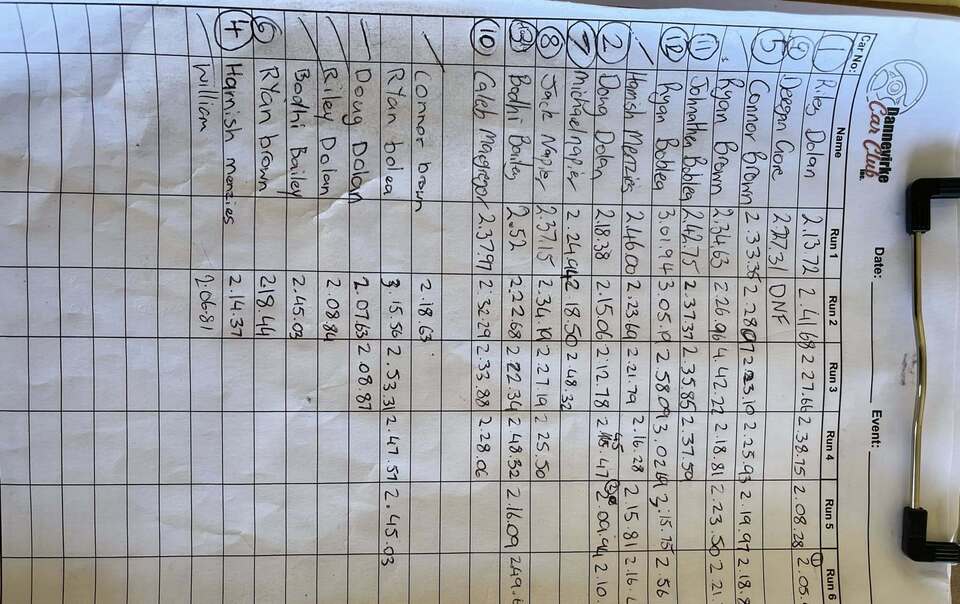 Dannevirke
Car Club
Inc.
Date: Event:
Car No: Name Run 1 Run 2 Run 3 Run 4 Run 5 Run 6
1 Riley Dolan 2.13.72 2.41.68 2.27.66 2.38.75 2.08.28 2.05.
Deegan Gore 2.27.31 DNF
5 Connor Brown 2.33.35 2.28.07 2.23.10 2.25.93 2.19.97 2.18.8
Ryan Brown 2.34.63 2.26.96 4.42.22 2.18.81 2.23.50 2.21.
11 Johnathan Boblea 2.42.75 2.37.37 2.35.85 2.37.59
12 Ryan Boblea 3.01.94 3.05.19 2.58.09 3.02.69 3.15.75 2.56
Hamish Menzies 2.46.00 2.23.69 2.21.79 2.16.28 2.15.81 2.16.
2 Doug Dolan 2.18.38 2.15.06 2.12.78 2.09.94 2.10.
7 Michael Napier 2.24.94 2.18.50 2.48.32
8 Jack Napier 2.37.15 2.34.19 2.27.19 2.25.50
Bodhi Bailey 2.52 2.22.68 2.22.34 2.48.32 2.16.09 2.49.
10 Caleb Macgregor 2.37.97 2.32.29 2.33.88 2.28.06
Connor brown 2.18.63
Ryan bolea 3.15.56 2.53.31 2.47.57 2.45.03
Doug Dolan 2.07.63 2.08.87
Riley Dolan 2.08.84
Bodhi Bailey 2.45.03
6 Ryan brown 2.18.44
4 Hamish menzies 2.14.37
William 2.06.81